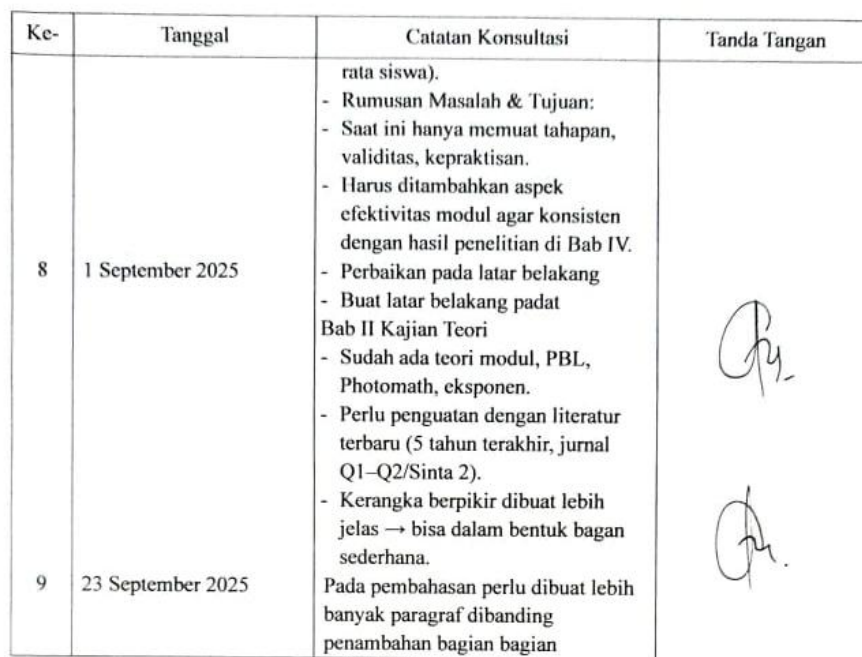 Ke- Tanggal Catatan Konsultasi Tanda Tangan
rata siswa).
- Rumusan Masalah & Tujuan:
- Saat ini hanya memuat tahapan,
validitas, kepraktisan.
- Harus ditambahkan aspek
efektivitas modul agar konsisten
dengan hasil penelitian di Bab IV.
8 1 September 2025 - Perbaikan pada latar belakang
- Buat latar belakang padat
Bab II Kajian Teori
- Sudah ada teori modul, PBL,
Photomath, eksponen.
- Perlu penguatan dengan literatur
terbaru (5 tahun terakhir, jurnal
Q1–Q2/Sinta 2).
- Kerangka berpikir dibuat lebih
jelas → bisa dalam bentuk bagan
sederhana.
9 23 September 2025 Pada pembahasan perlu dibuat lebih
banyak paragraf dibanding
penambahan bagian bagian